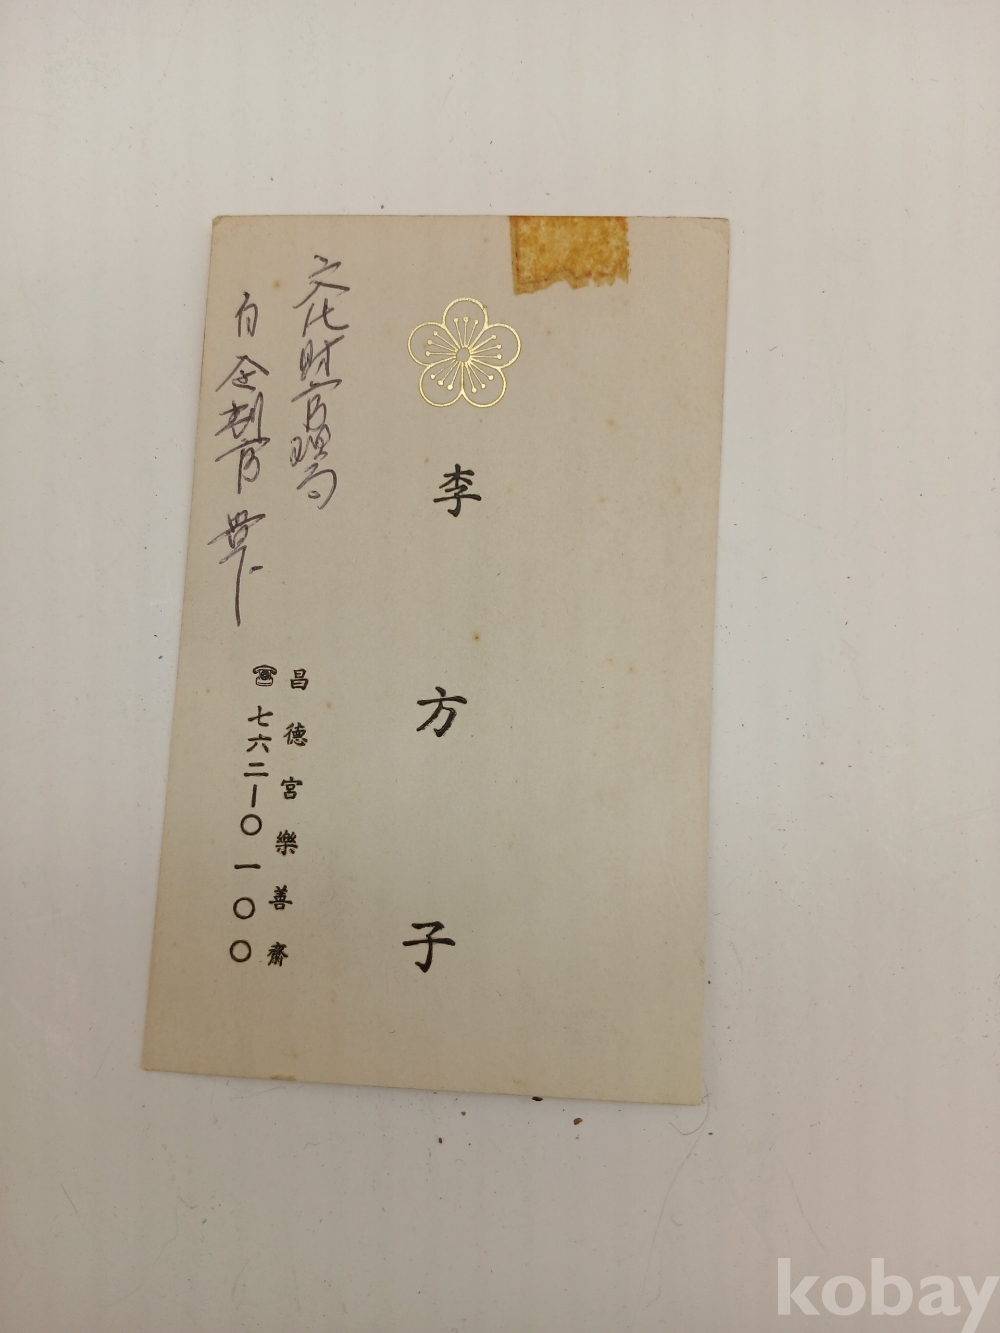 李方子
文化財管理局
白企劃官 貴下
昌德宮樂善齋
☎七六二-〇一〇〇
kobay